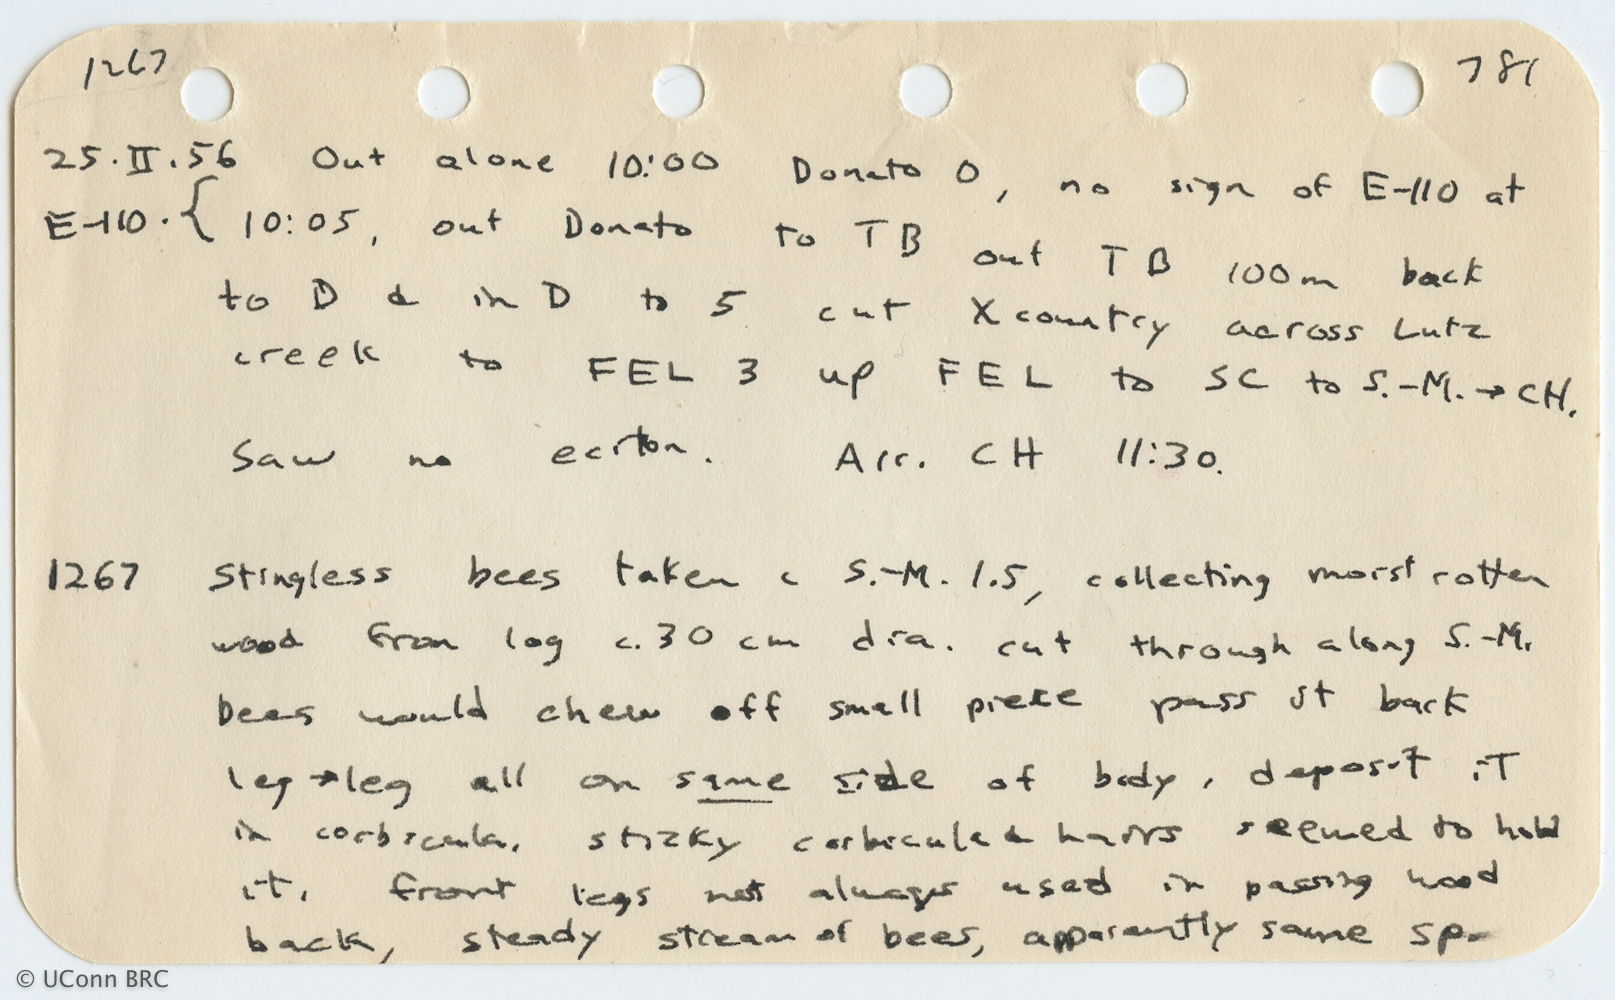 1267 781
25.II.56 Out alone 10:00 Donato 0, no sign of E-110 at
E-110. { 10:05, out Donato to TB out TB 100m back
to D & in D to 5 cut Xcountry across Lutz
creek to FEL 3 up FEL to SC to S.-M. → CH.
Saw no eciton. Arr. CH 11:30.
1267 Stingless bees taken c S.-M. 1.5, collecting moist rotten
wood from log c. 30 cm dia. cut through along S.-M.
bees would chew off small piece pass it back
leg → leg all on same side of body, deposit it
in corbicula. sticky corbicula & hairs seemed to hold
it. front legs not always used in passing wood
back, steady stream of bees, apparently same sp.
© UConn BRC